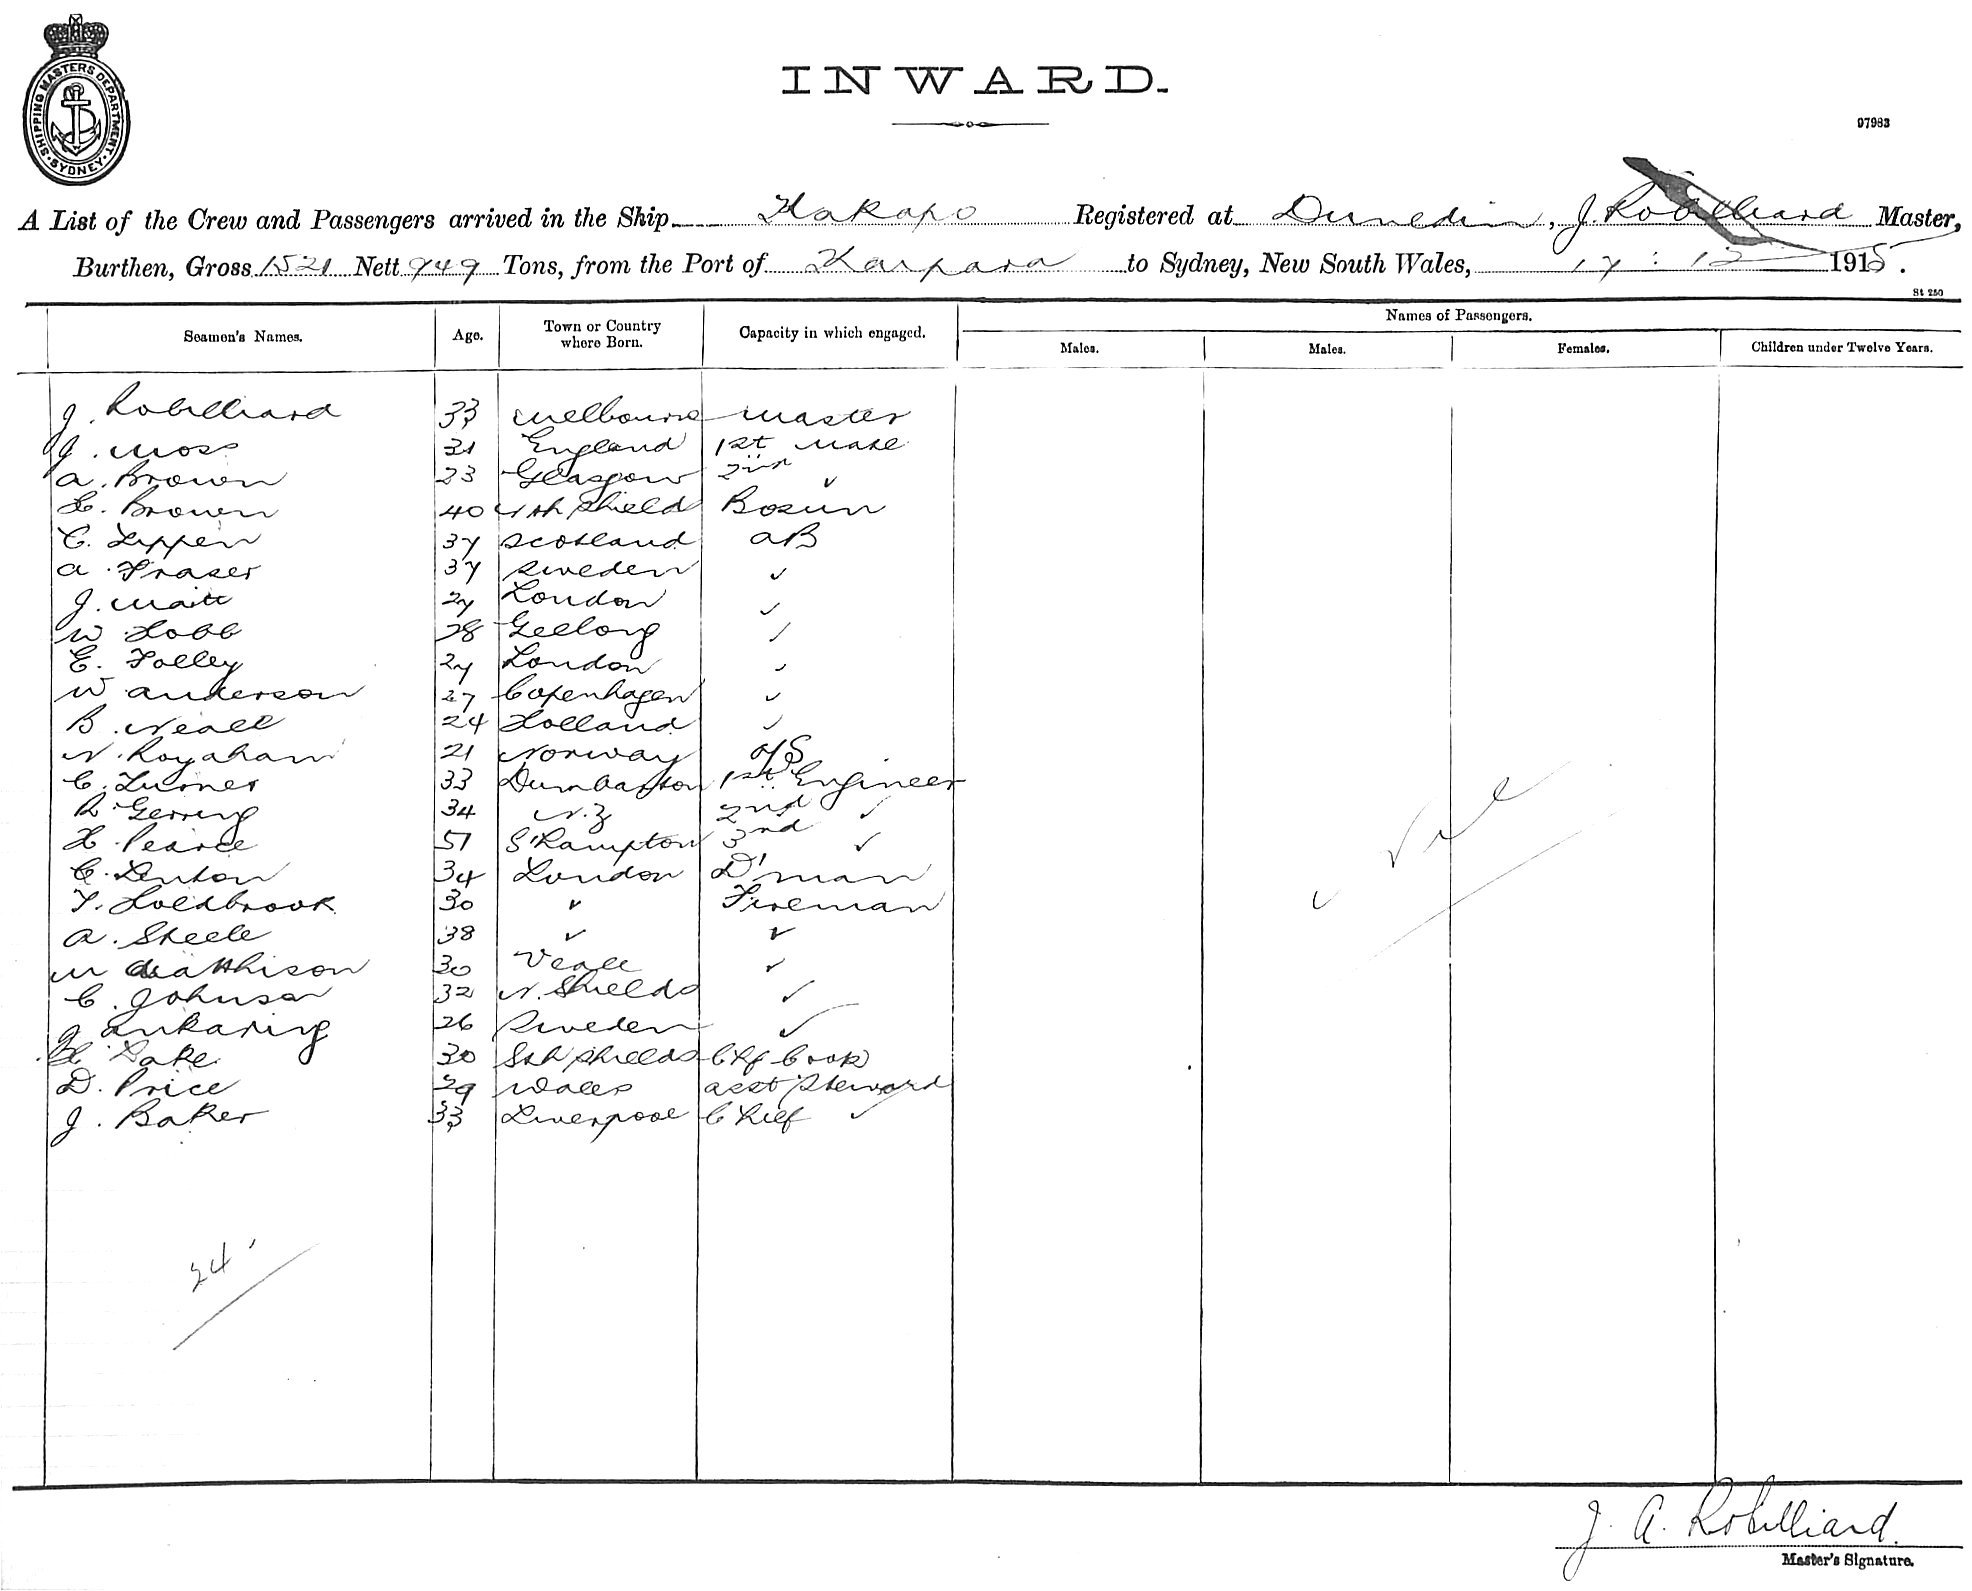 SHIPPING MASTERS DEPARTMENT. SYDNEY.
INWARD.
97983
A List of the Crew and Passengers arrived in the Ship Kakapo Registered at Dunedin, J. Robilliard Master,
Burthen, Gross 1521 Nett 949 Tons, from the Port of Kaipara to Sydney, New South Wales, 17 : 12 1915.
St 250
Seamen's Names. Age. Town or Country where Born. Capacity in which engaged. Names of Passengers.
Males. Males. Females. Children under Twelve Years.
J. Robilliard 33 Melbourne Master
J. Moss 31 England 1st Mate
A. Brown 23 Glasgow 2nd ✓
H. Brown 40 Nth Shields Bosun
C. Lippen 37 Scotland AB
A. Fraser 37 Sweden ✓
J. 27 London ✓
W Hobb 28 Geelong ✓
E. Folley 27 London ✓
W Anderson 27 Copenhagen ✓
B. Neall 24 Holland ✓
N. 21 Norway O/S
C. Turner 33 Dumbarton 1st Engineer
R Gerring 34 N.Z 2nd ✓
H. Pearce 51 S'hampton 3rd ✓
C. Denton 34 London D'man
T. Holdbrook 30 ✓ Fireman
A. Steele 38 ✓ ✓
M Matthison 30 ✓
C. Johnson 32 N. Shields ✓
J Ankaring 26 Sweden ✓
H Lake 30 Sth Shields Chf Cook
D. Price 29 Wales Asst Steward
J. Baker 33 Liverpool Chief ✓
Nil
24
J. A. Robilliard.
Master's Signature.